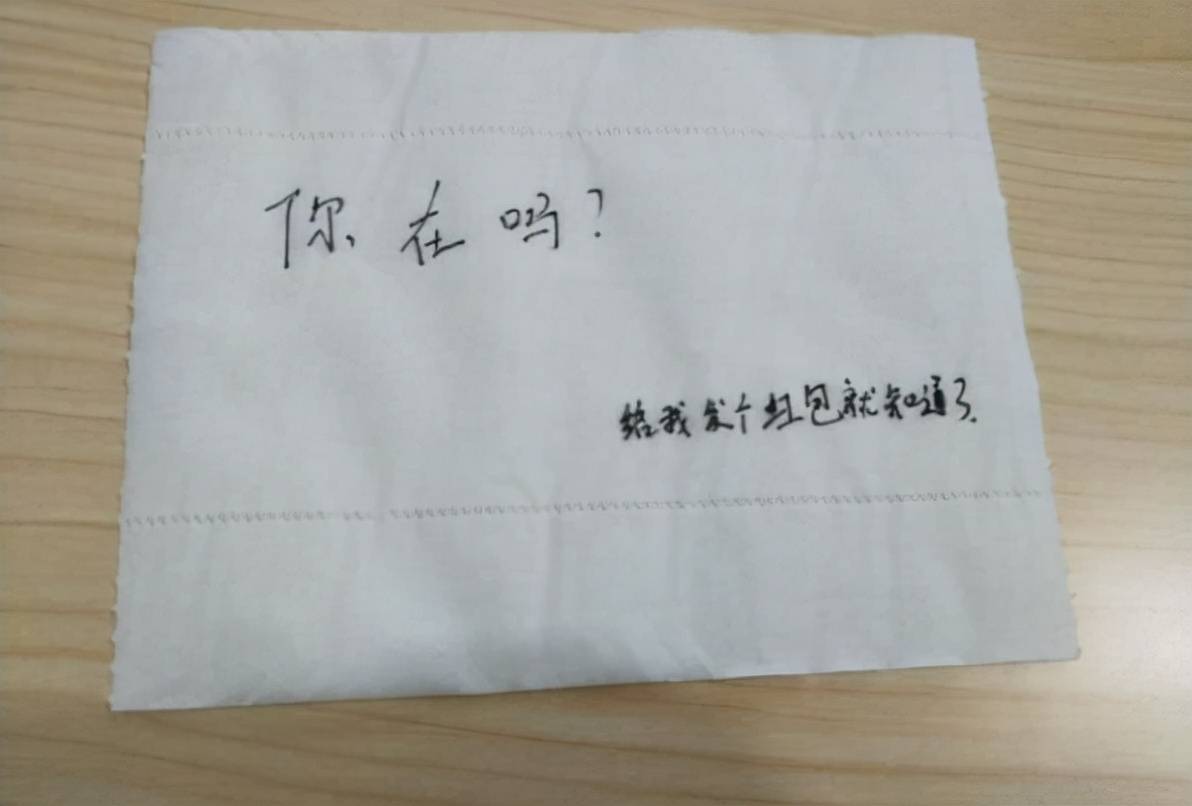 你在吗?
给我发个红包就知道了.